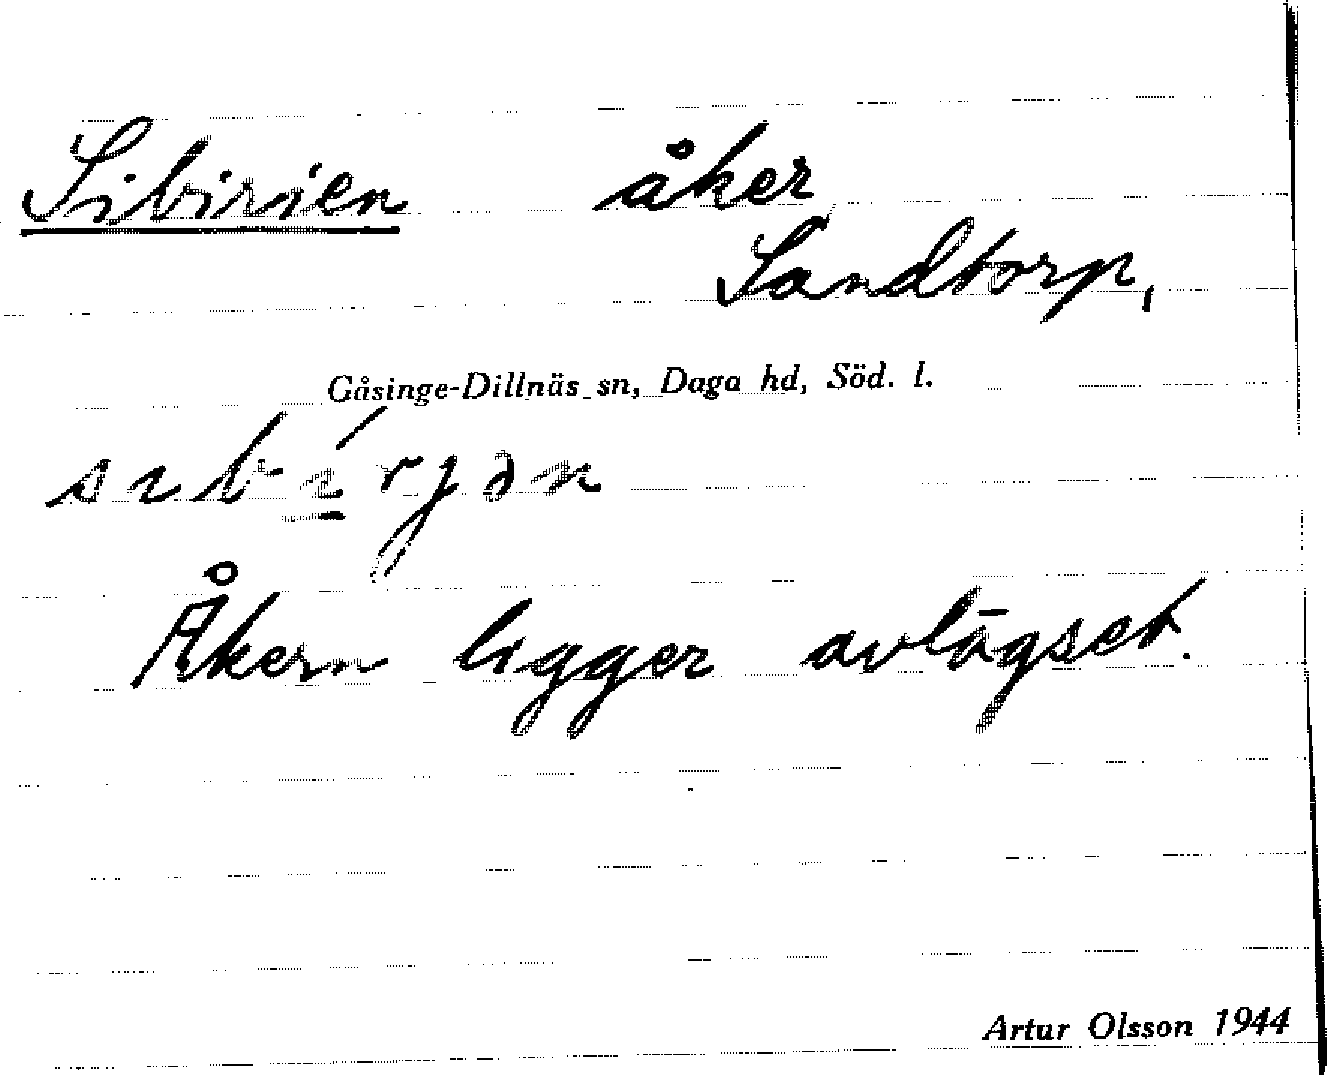 Sibirien åker
Sandtorp,
Gåsinge-Dillnäs sn, Daga hd, Söd. l.
sɪbí̲rjən
Åkern ligger avlägset.
Artur Olsson 1944